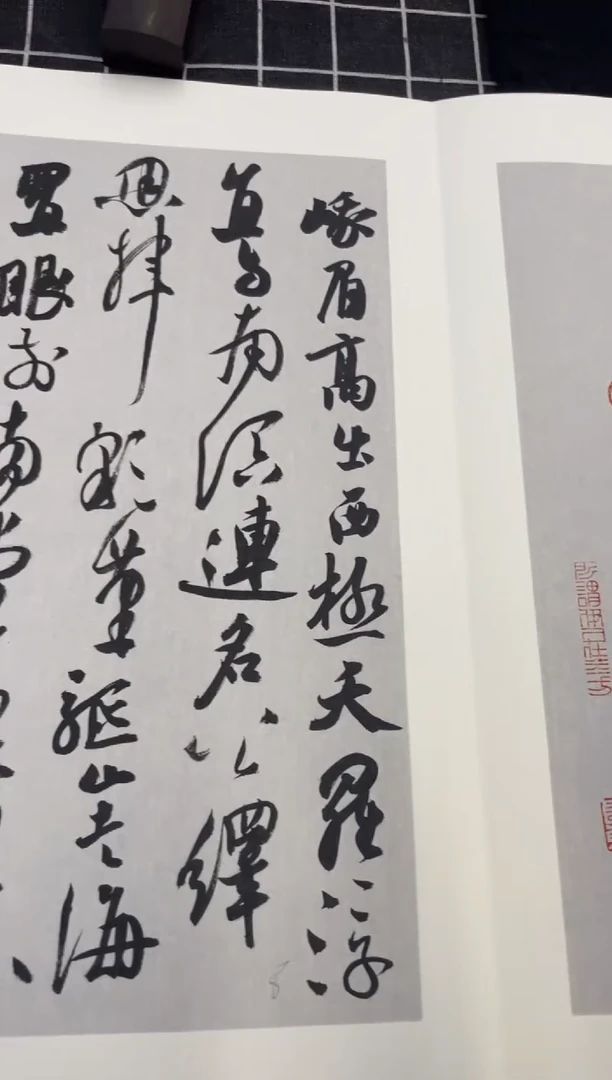 峨眉高出西極天羅浮
直与南溟連名公繹
思揮彩筆驅山走海
置眼前